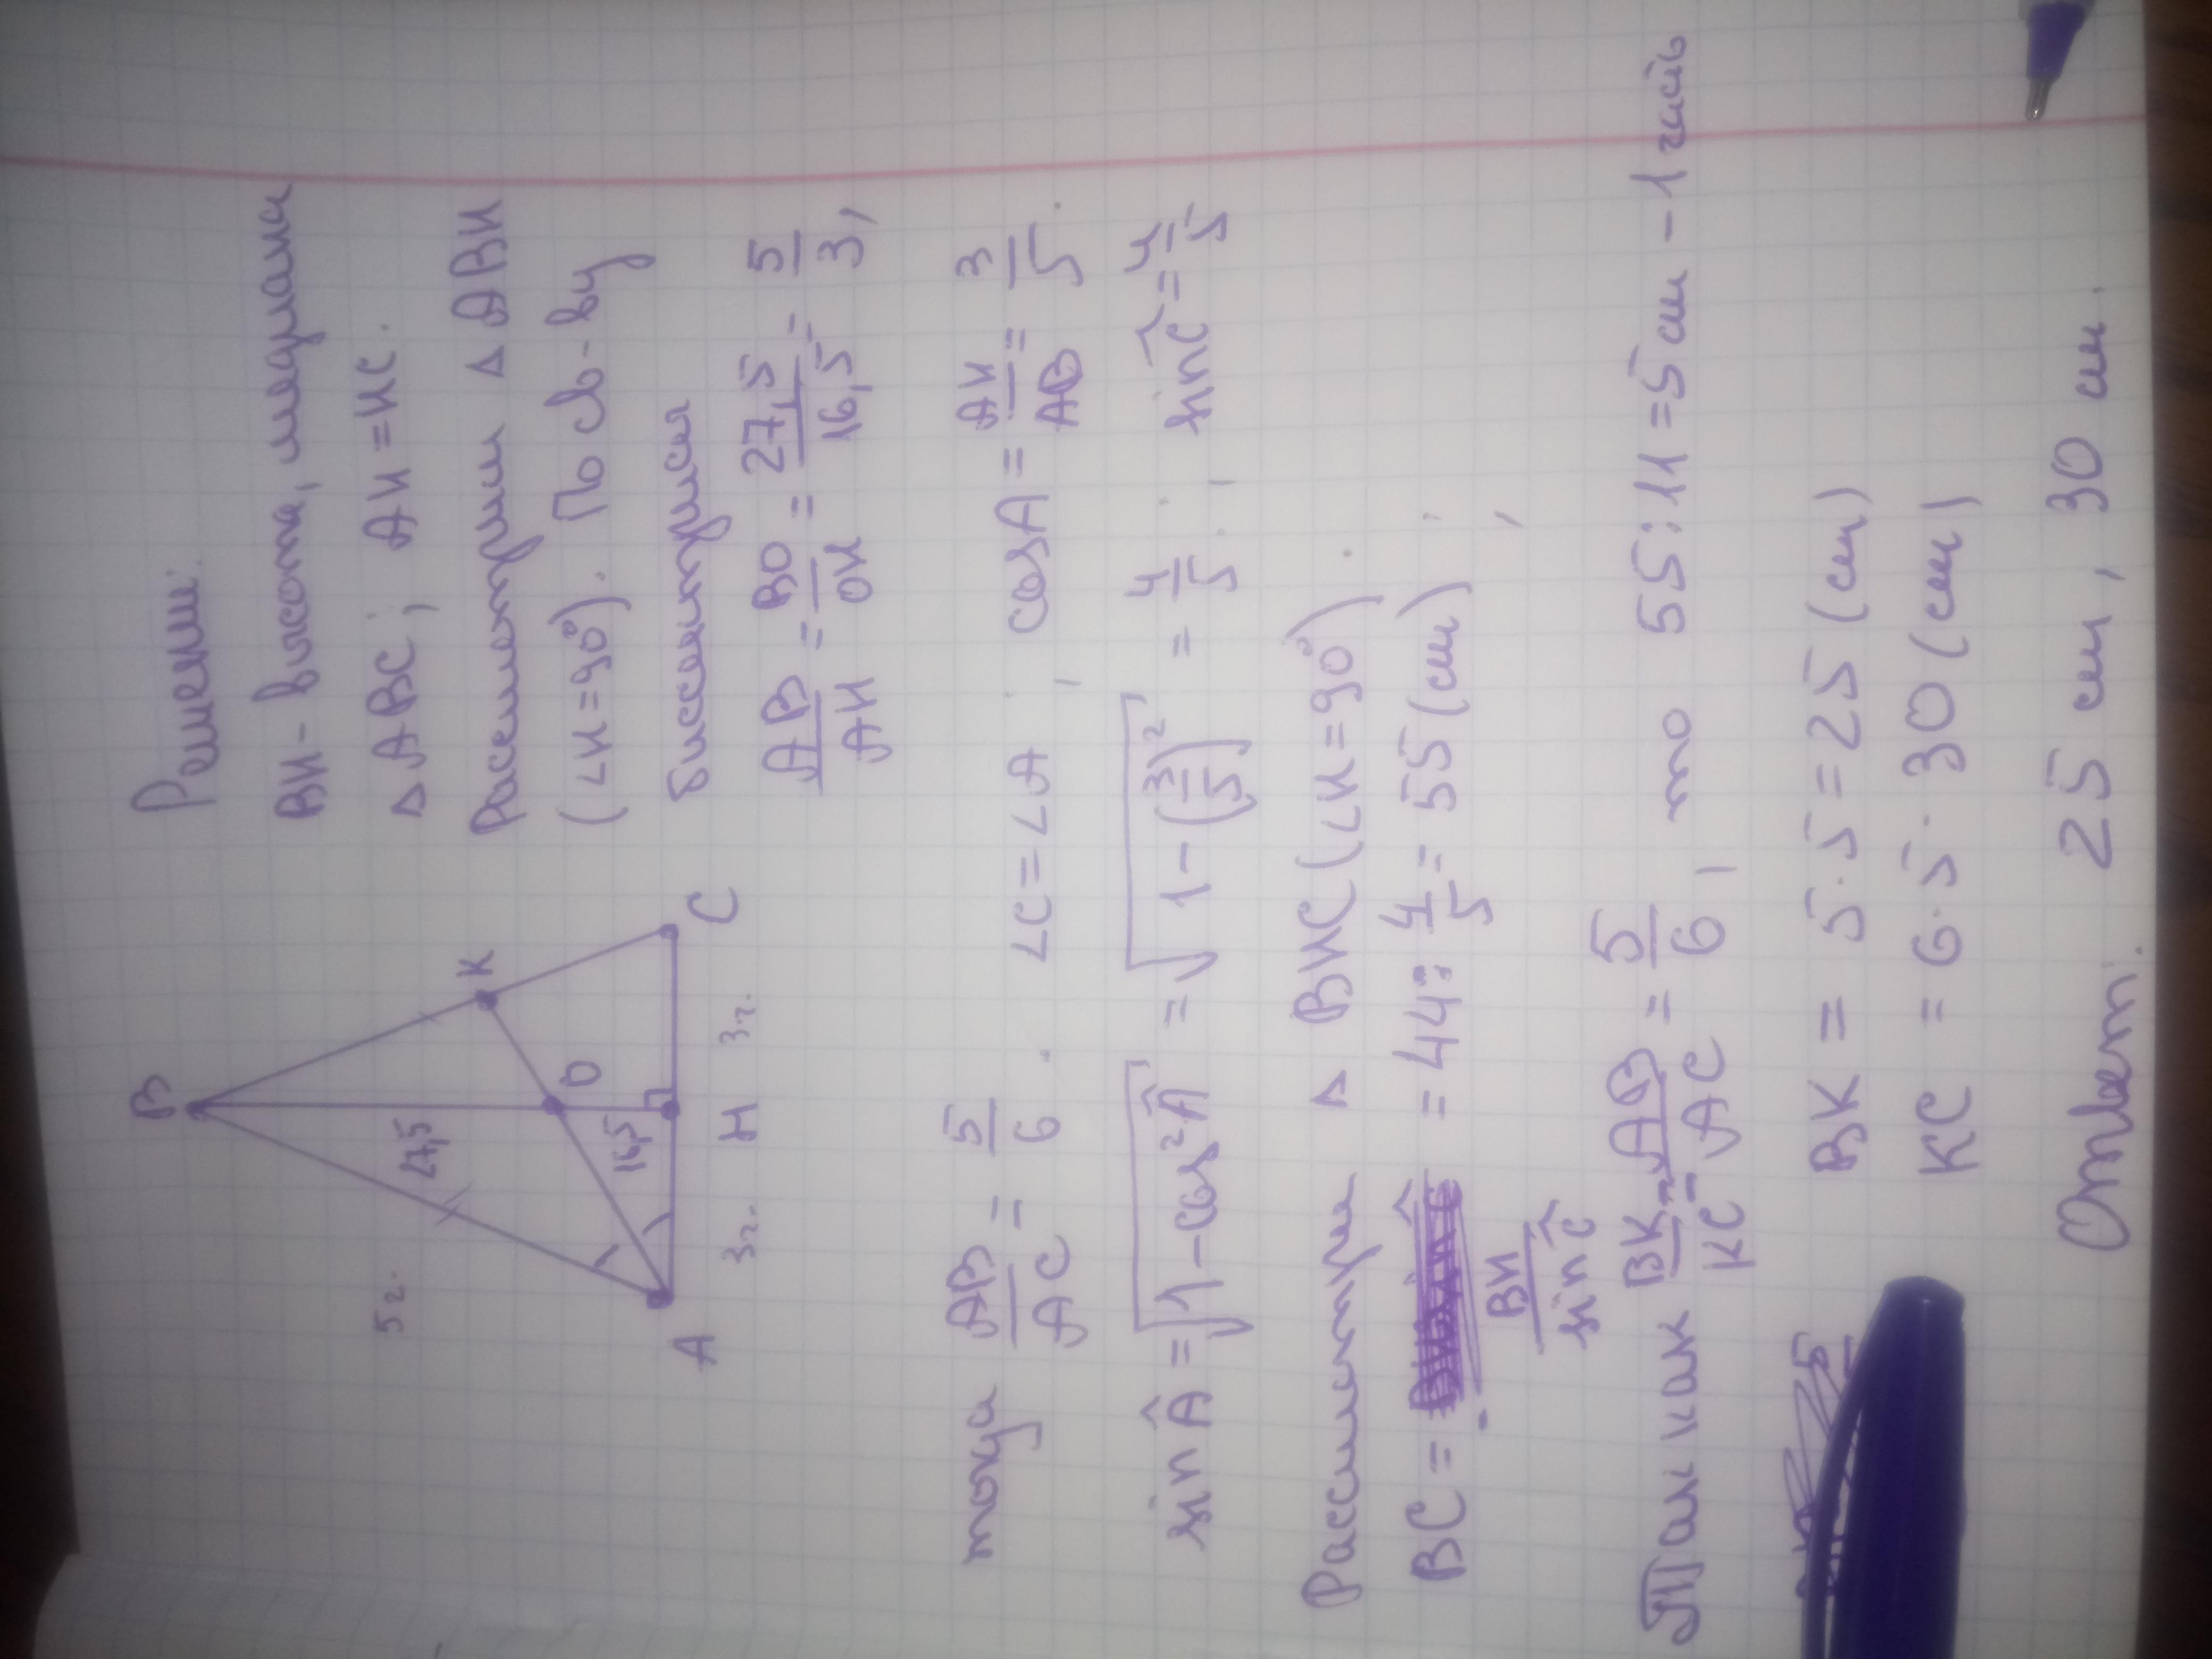 Решени:
BH - высота, медиана
△ ABC; AH = HC.
Рассмотрим △ ABH
(∠H = 90°). По св-ву
биссектрисы
AB/AH = BO/OH = 27,5/16,5 = 5/3,
B
5ч.
27,5
K
O
16,5
A
3ч.
H
3ч.
C
тогда AB/AC = 5/6. ∠C = ∠A; cos A = AH/AB = 3/5.
sin Â = √(1 - cos² Â) = √(1 - (3/5)²) = 4/5; sin Ĉ = 4/5
Рассмотри △ BHC (∠H = 90°).
BC = BH/sin Ĉ = 44 : 4/5 = 55 (см);
Так как BK/KC = AB/AC = 5/6, то 55 : 11 = 5 см - 1 часть
BK = 5 · 5 = 25 (см)
KC = 6 · 5 · 30 (см)
Ответ: 25 см, 30 см.